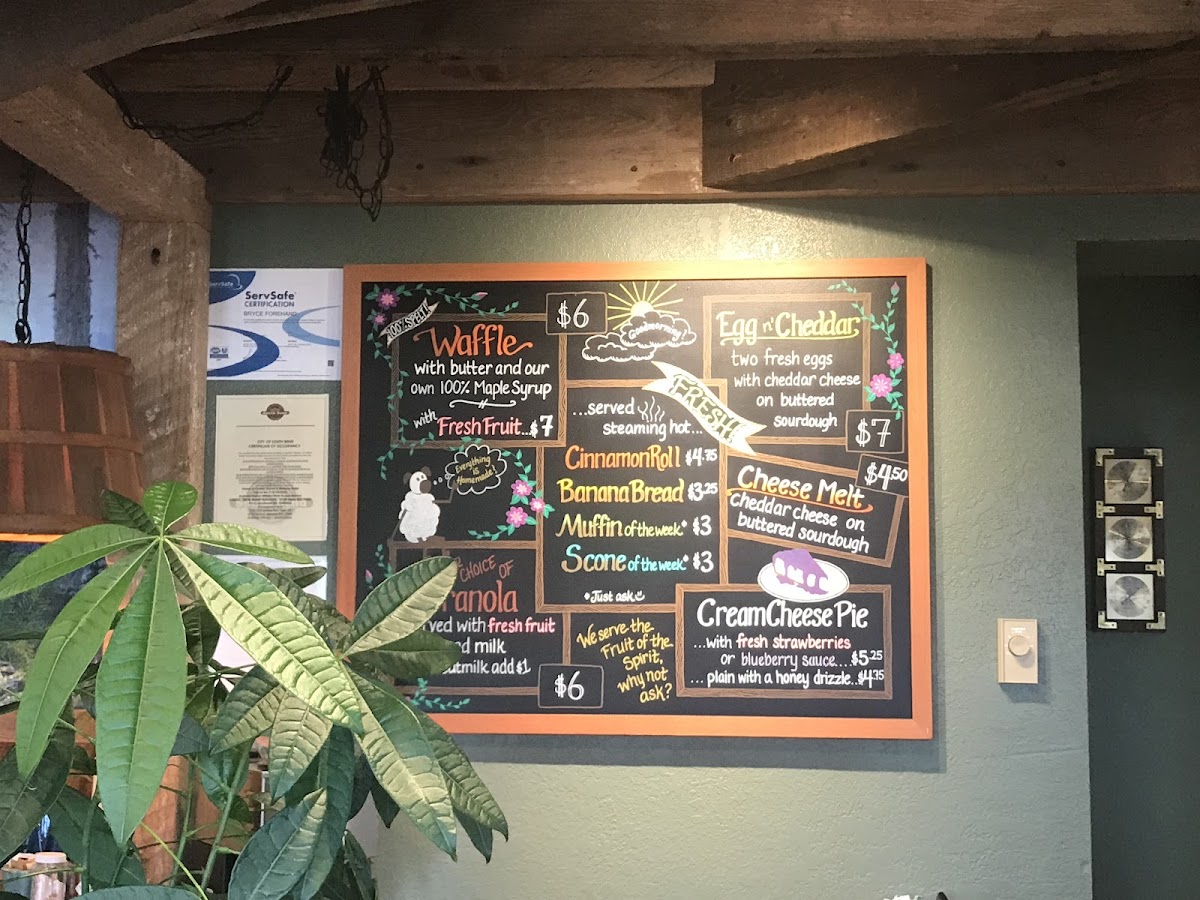 ServSafe
ServSafe®
CERTIFICATION
BRYCE FOREHAND
CERTIFICATE OF OCCUPANCY
100% SPELT!
Waffle
$6
with butter and our
own 100% Maple Syrup
with Fresh Fruit...$7
Goodmorning!
FRESH!
Egg n' Cheddar
two fresh eggs
with cheddar cheese
on buttered
sourdough
$7
...served
steaming hot...
Cinnamon Roll $4.75
Banana Bread $3.25
Muffin of the week* $3
Scone of the week* $3
*Just ask
Everything
is
Homemade!
Cheese Melt
$4.50
cheddar cheese on
buttered sourdough
CHOICE OF
ranola
rved with fresh fruit
milk
utmilk add $1
$6
We serve the
Fruit of the
Spirit,
why not
ask?
Cream Cheese Pie
...with fresh strawberries
or blueberry sauce....$5.25
...plain with a honey drizzle..$4.75